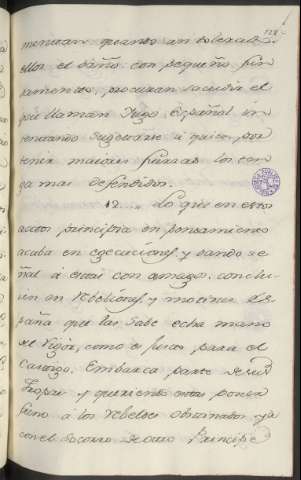 mentan quanto an tolerado
ellos el daño: con pequeño fun
damento, procuran sacudir el
que llaman Jugo Español in
tentando sugetarse á quien por
tener maiores fuerzas los ten
ga mas defendidos.
12 Lo que en estos
actos principia en pensamiento
acaba en egecuciones, y dando se
ñal á estas con amagos, conclu
ien en rebeliones, y motines. Es
paña que las sabe echa mano
del rigor, como es justo para el
castigo. Embarca parte de sus
tropas y queriendo estas poner
freno á los rebeldes obstinados ya
con el socorro de otro Principe